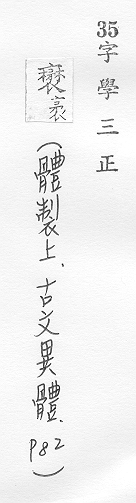 35字學三正
(體製上.古文異體.P82)